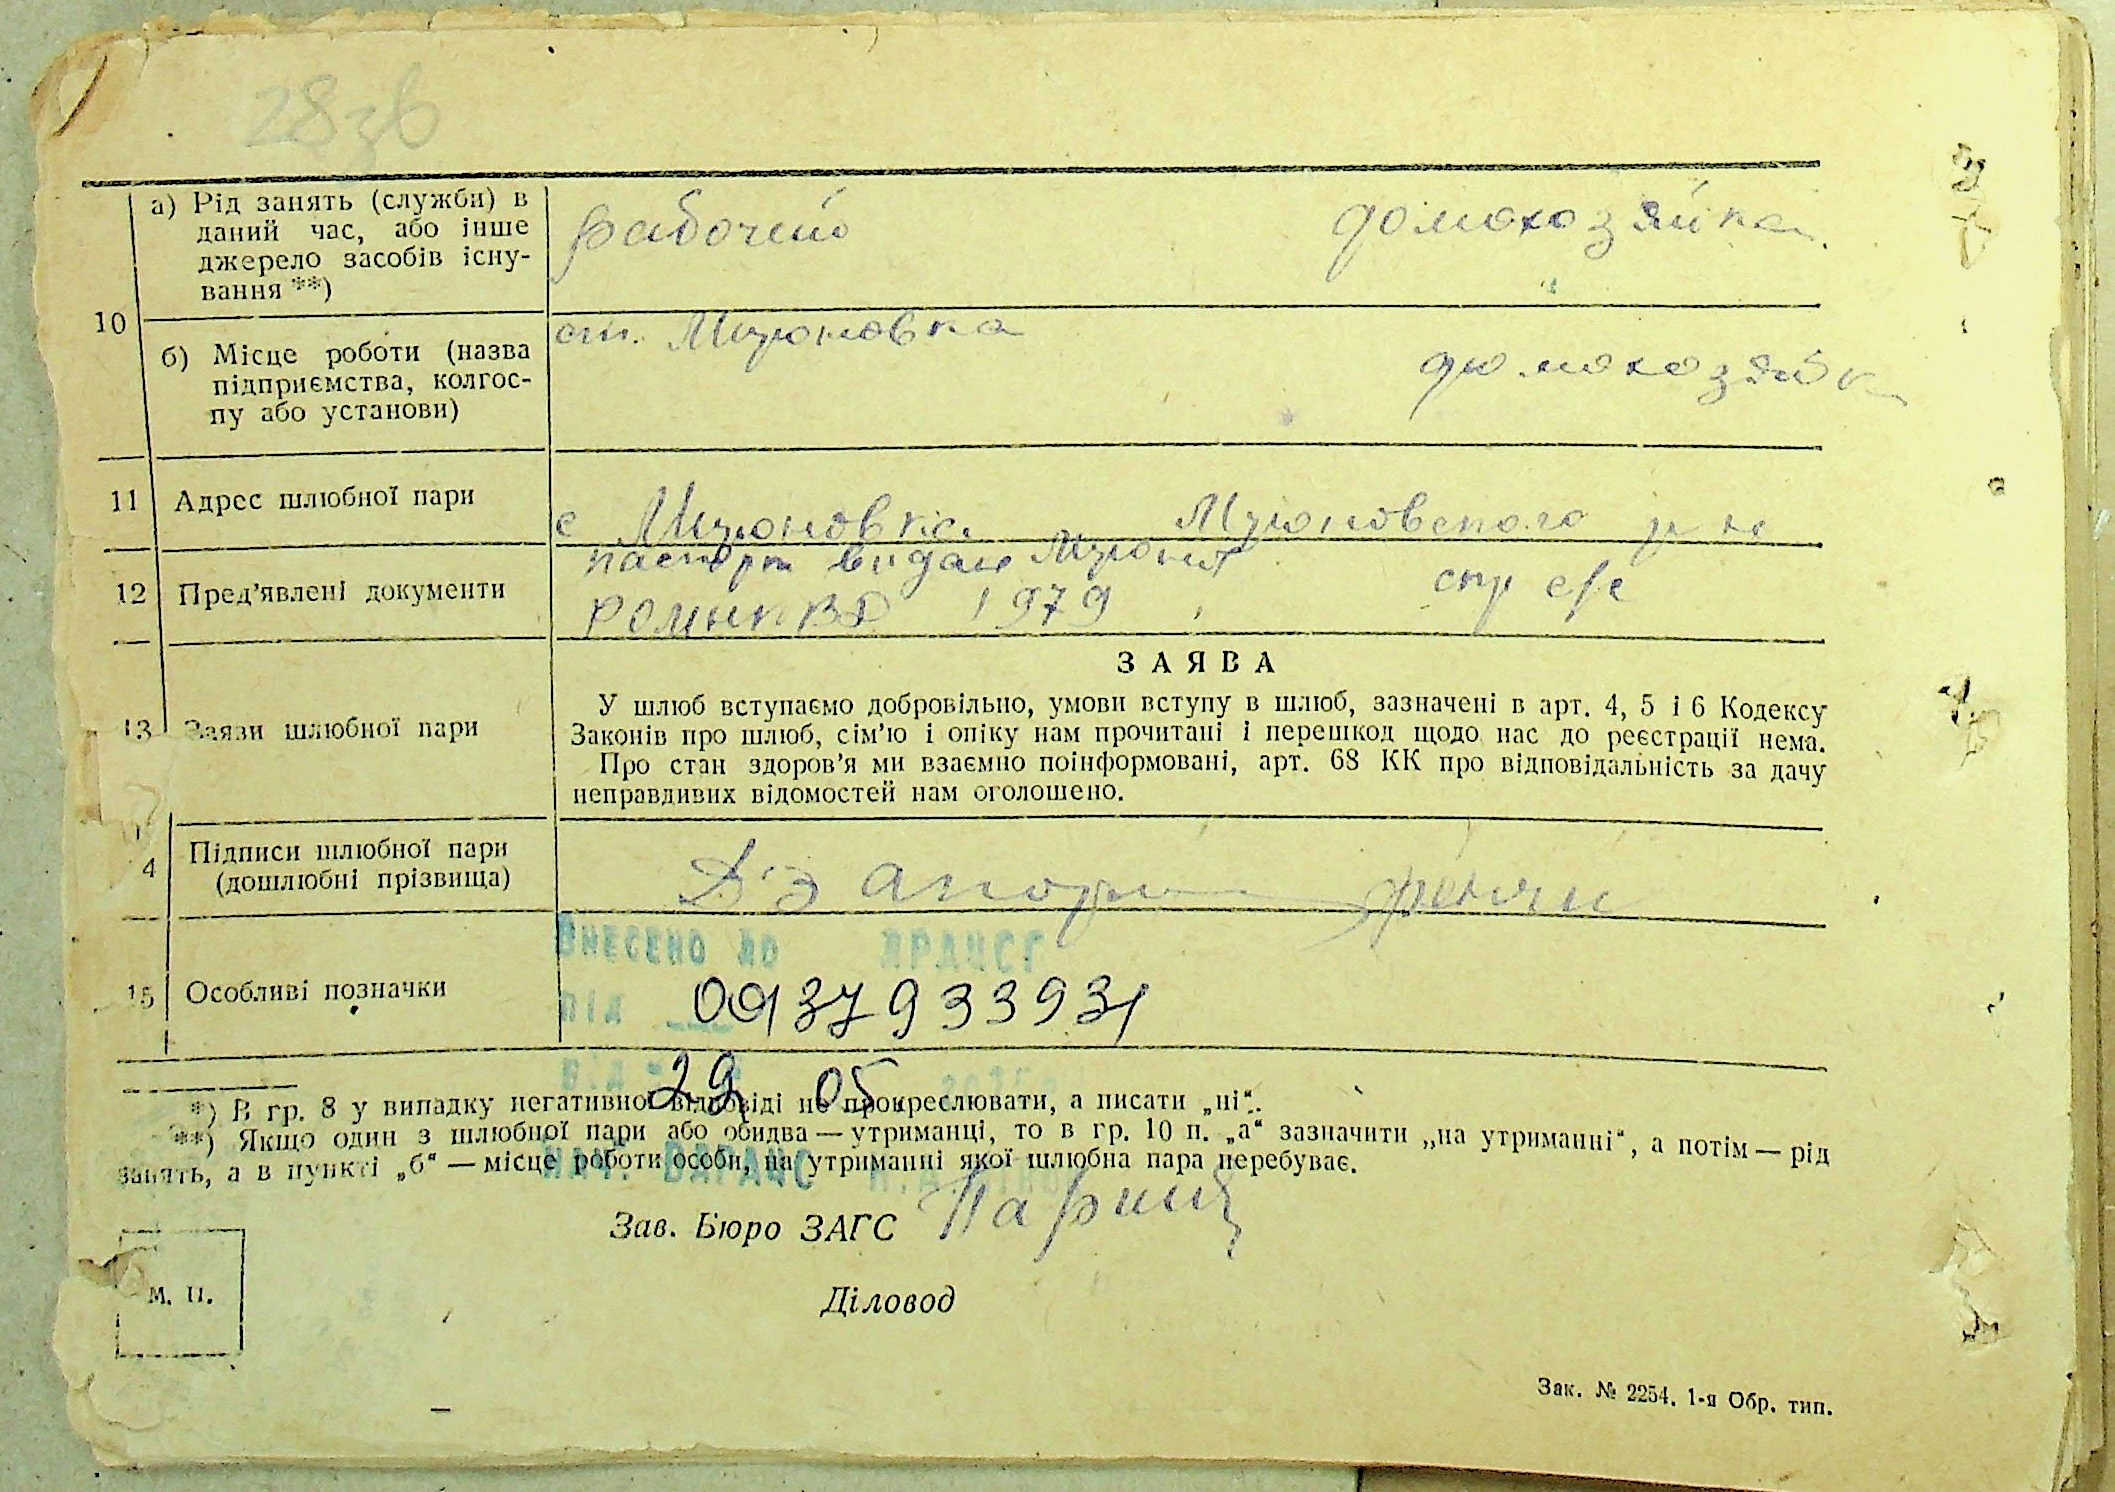 28зв
а) Рід занять (служби) в
даний час, або інше
джерело засобів існу-
вання **)
рабочий
домохозяйка
10
б) Місце роботи (назва
підприємства, колгос-
пу або установи)
ст. Мироновка
домохозяйк
11 Адрес шлюбної пари
с Мироновка Мироновского р не
12 Пред’явлені документи
паспорт видан Мирон
РОМНКВД 1979
спр с/с
ЗАЯВА
13 Заяви шлюбної пари
У шлюб вступаємо добровільно, умови вступу в шлюб, зазначені в арт. 4, 5 і 6 Кодексу
Законів про шлюб, сім’ю і опіку нам прочитані і перешкод щодо нас до реєстрації нема.
Про стан здоров’я ми взаємно поінформовані, арт. 68 КК про відповідальність за дачу
неправдивих відомостей нам оголошено.
4 Підписи шлюбної пари
(дошлюбні прізвища)
ВНЕСЕНО ДО ДРАЦСГ
15 Особливі позначки
ПІД 00137933931
від 29 05
*) В гр. 8 у випадку негативної відповіді не прокреслювати, а писати „ні“.
**) Якщо один з шлюбної пари або обидва — утриманці, то в гр. 10 п. „а“ зазначити „на утриманні“, а потім — рід
занять, а в пункті „б“ — місце роботи особи, на утриманні якої шлюбна пара перебуває.
НАЧ. ВДРАЦС
Зав. Бюро ЗАГС
Діловод
М. П.
Зак. № 2254. 1-я Обр. тип.